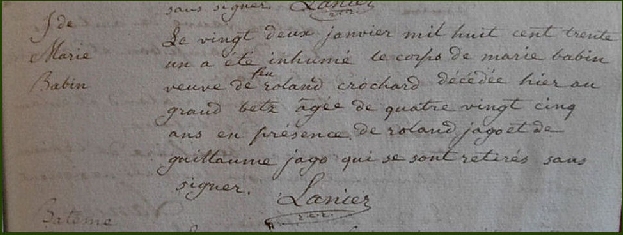 sans signer. Lanier
S. de
Marie
Babin
Le vingt deux janvier mil huit cent trente
un a été inhumé le corps de marie babin
veuve de feu roland crochard décédée hier au
grand betz âgée de quatre vingt cinq
ans en présence de roland jago et de
guillaume jago qui se sont retirés sans
signer. Lanier
Bateme